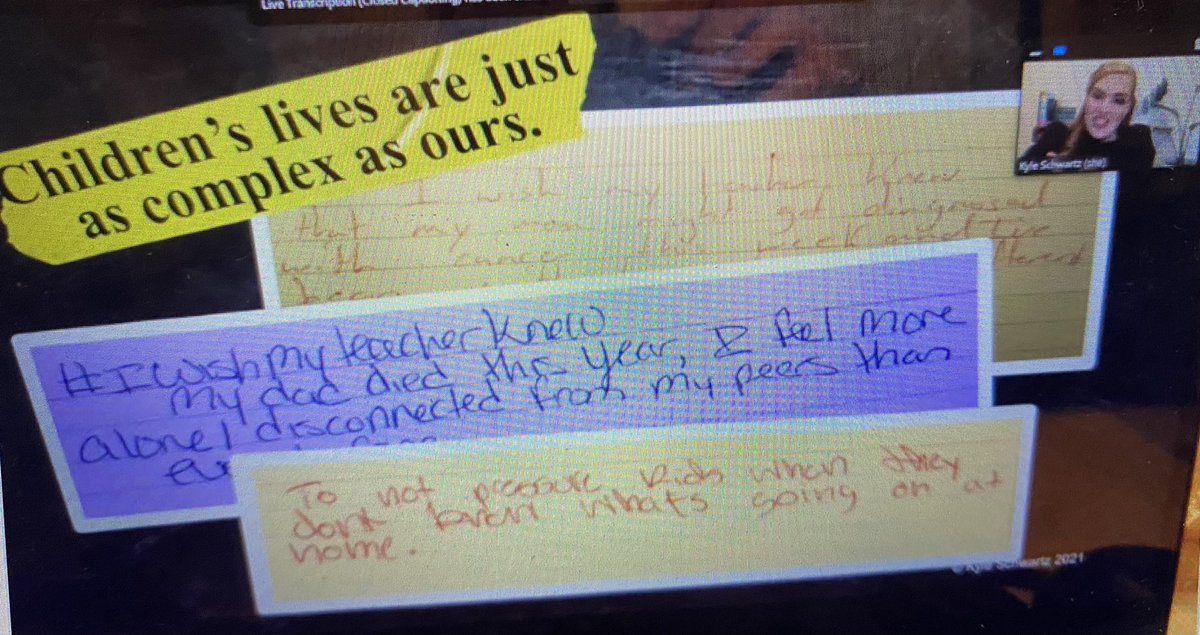 Live Transcription (Closed Captioning) has been
Children's lives are just
as complex as ours.
Kyle Schwartz (she)
I wish my teacher knew
that my mom might get diagnosed
with cancer this week and I've
been
#I wish my teacher knew
my dad died this year, I feel more
alone/disconnected from my peers than
To not pressure kids when they
dont know whats going on at
home.
© Kyle Schwartz 2021